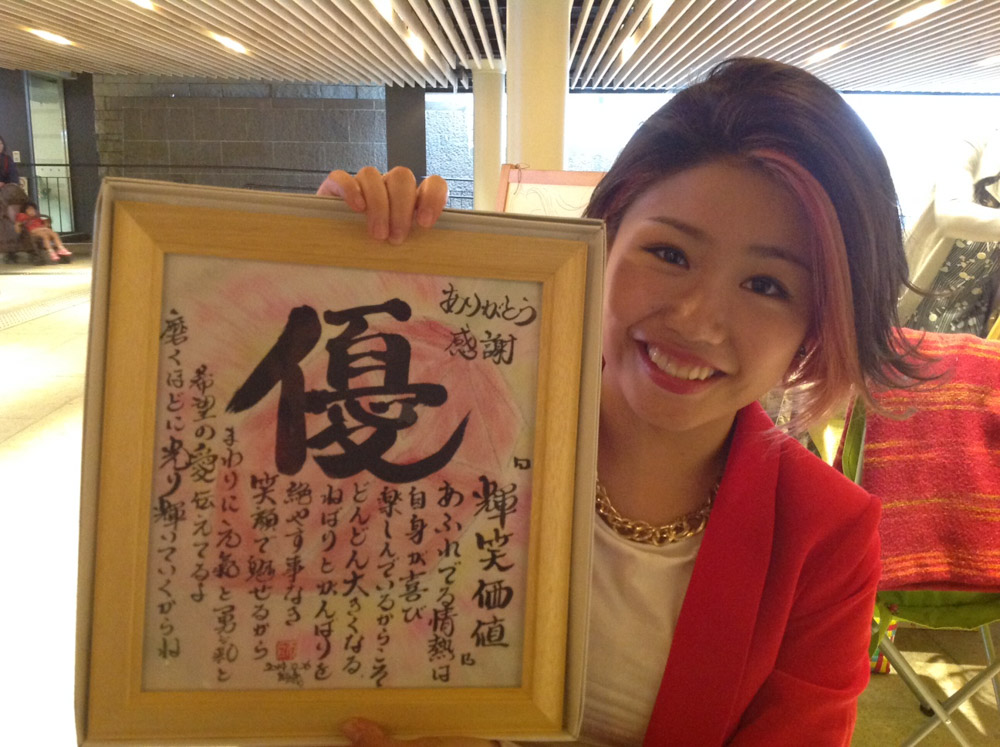 ありがとう
感謝
優
「輝笑価値」
あふれでる情熱は
自身が喜び
楽しんでいるからこそ
どんどん大きくなる
ねばりとがんばりを
絶やす事なき
笑顔で魅せるから
まわりに元氣と勇氣と
希望の愛伝えてるよ
磨くほどに光り輝いていくからね